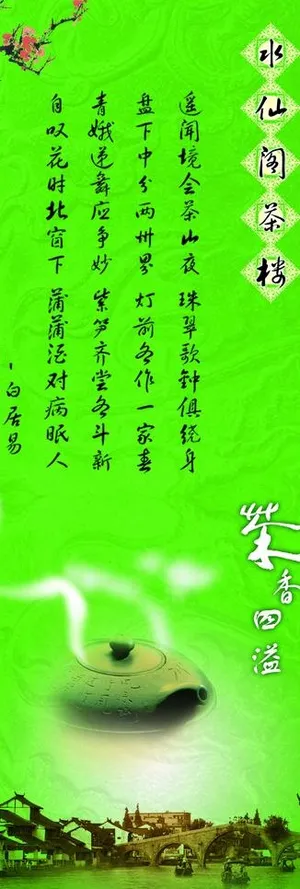 水仙阁茶楼
遥闻境会茶山夜 珠翠歌钟俱绕身
盘下中分两州界 灯前各作一家春
青娥递舞应争妙 紫笋齐尝各斗新
自叹花时北窗下 蒲蒲酒对病眠人
-白居易
茶香四溢